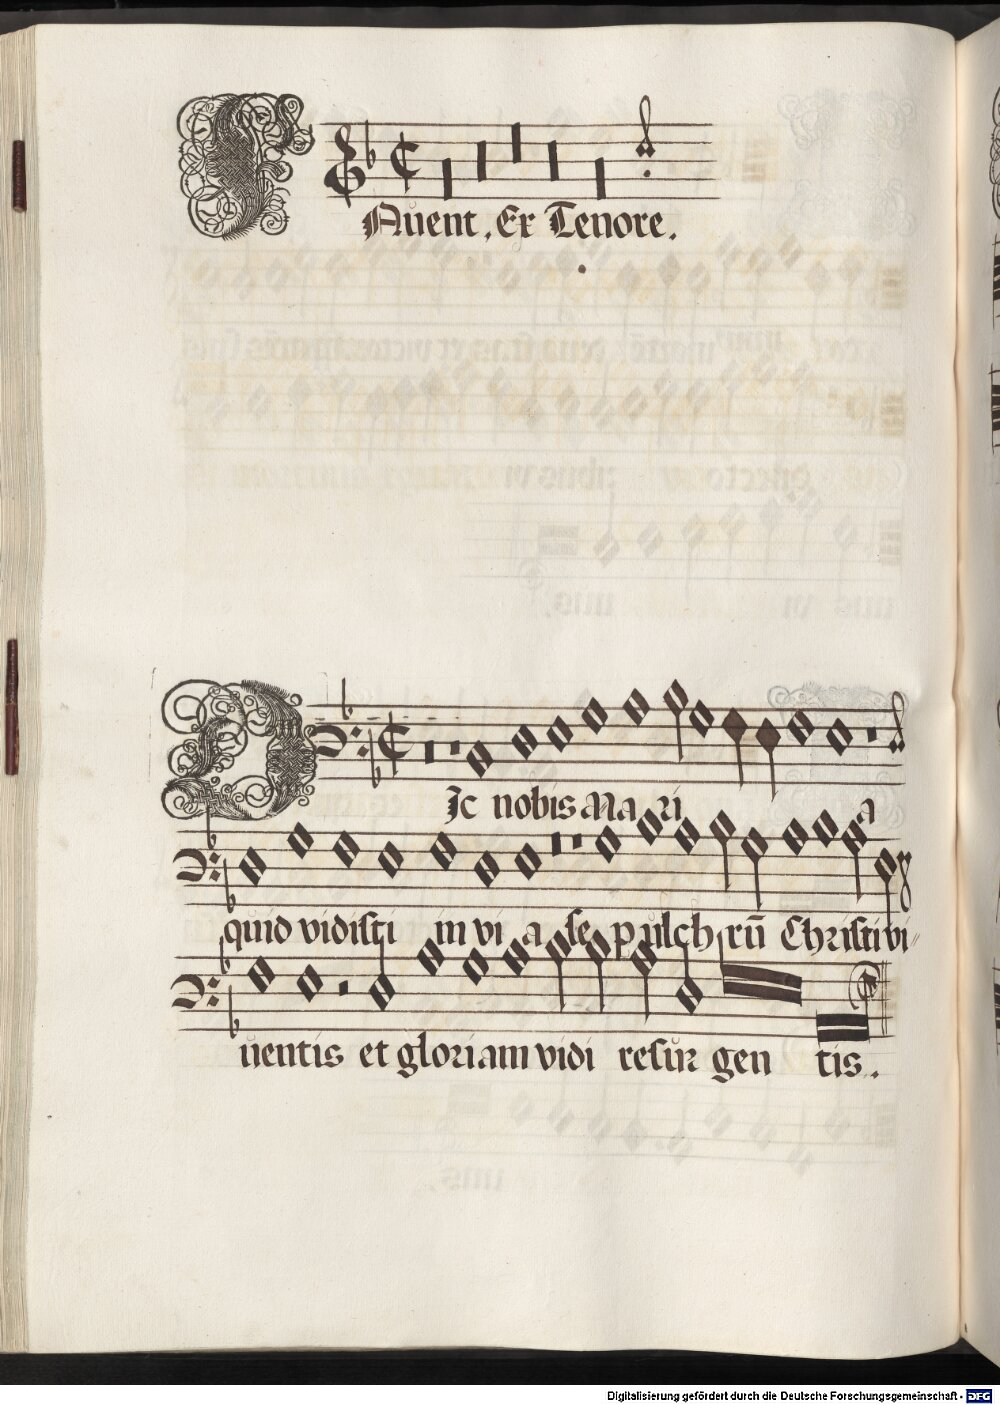 FAuent, Ex Tenore.
DIc nobis Ma ri a
quid vidisti in vi a se pulch rū Christi vi
uentis et gloriam vidi resur gen tis.
Digitalisierung gefördert durch die Deutsche Forschungsgemeinschaft - DFG